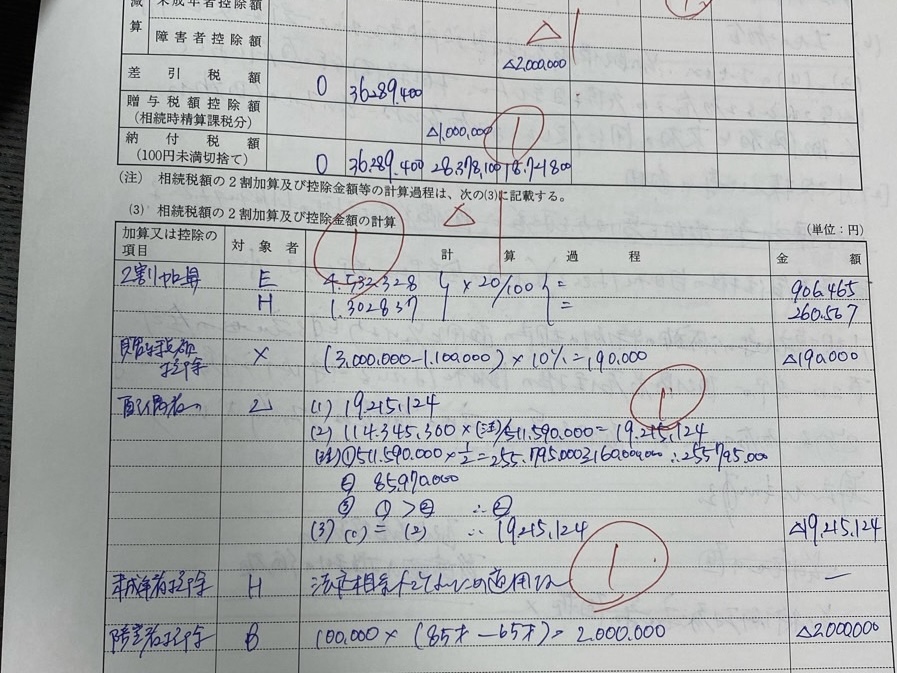 未成年者控除額
減
算
障害者控除額
△
△2,000,000
差引税額 0 36.289.400
贈与税額控除額
(相続時精算課税分) △1,000,000 1
納付税額
(100円未満切捨て) 0 36.289.400 28.378,100 18.741800
(注) 相続税額の2割加算及び控除金額等の計算過程は、次の(3)に記載する。
△
(3) 相続税額の2割加算及び控除金額の計算
(単位:円)
加算又は控除の
項目
対象者 計算過程 金額
1
2割加算 E 4.532.328 × 20/100 = 906.465
H 1.302837 = 260.567
贈与税額
控除 X (3.000.000-1.100.000) × 10%=190,000 △190,000
配偶者の 乙 (1) 19.215,124
1
(2) 114.345,300 × (注)/511.590.000= 19.215,124
(注)①511.590.000 × 1/2 =255.795.000≧160,000,000 ∴255795.000
② 85.970.000
③ ①>② ∴②
(3) (1) = (2) ∴ 19.215,124 △19,215,124
1
未成年者控除 H 法定相続人でないため適用なし ―
障害者控除 B 100,000 × (85才-65才)= 2.000.000 △2,000,000